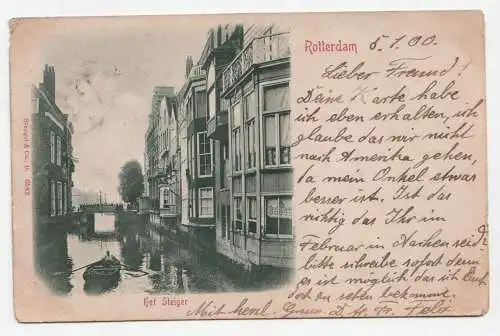 Rotterdam 5.1.00.
Lieber Freund!
Deine Karte habe
ich eben erhalten, ich
glaube das wir nicht
nach Amerika gehen,
da mein Onkel etwas
besser ist. Ist das
richtig das Ihr im
Februar in Aachen seid?
bitte schreibe sofort denn
es ist möglich das ich Euch
dort zu sehen bekomme.
Mit herzl. Gruss D. Fr. Felix
Stengel & Co., D.
Het Steiger